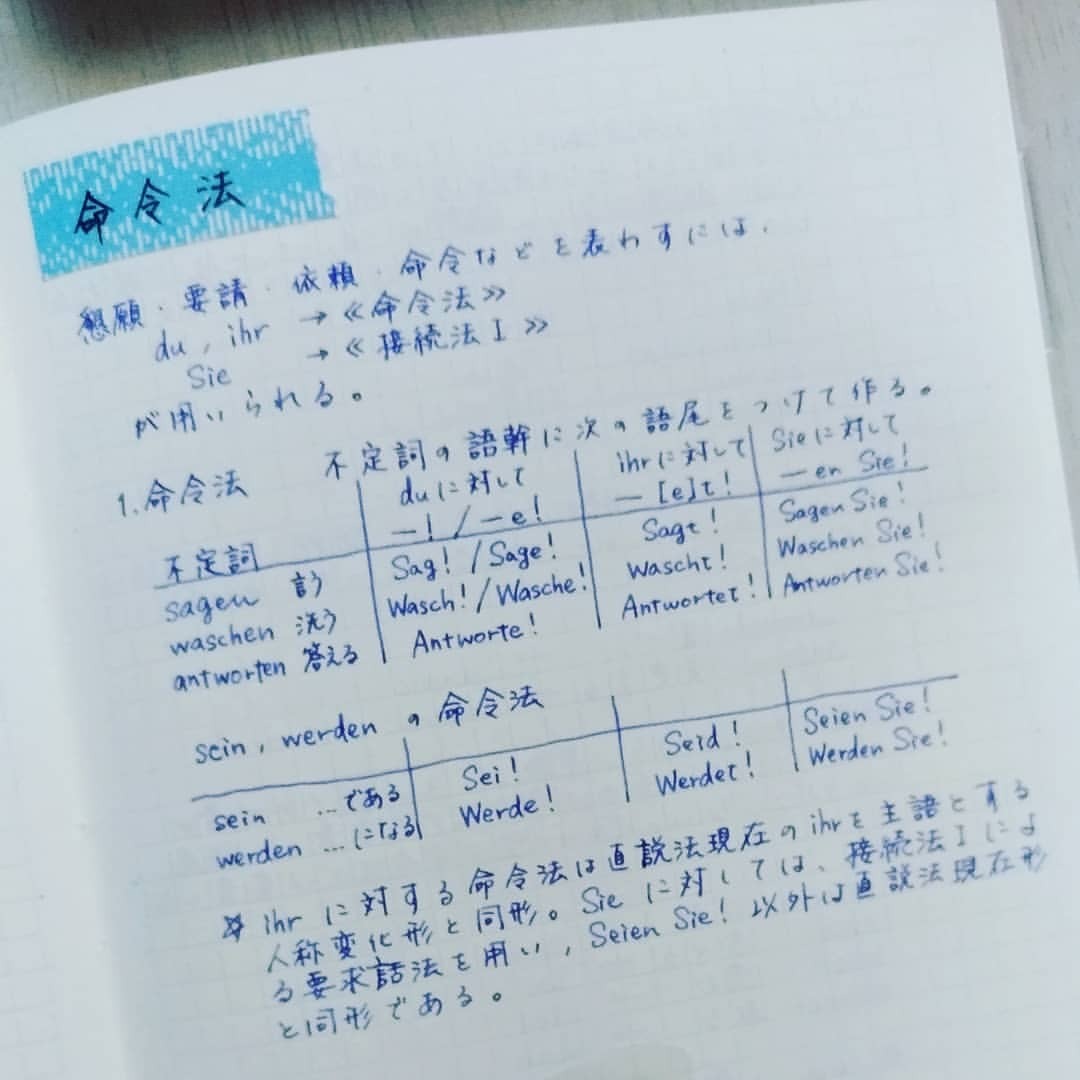 命令法
懇願・要請・依頼・命令などを表わすには、
du, ihr → 《命令法》
Sie → 《接続法 I》
が用いられる。
1. 命令法 不定詞の語幹に次の語尾をつけて作る。
不定詞 duに対して ihrに対して Sieに対して
—! / —e! —[e]t! —en Sie!
sagen 言う Sag! / Sage! Sagt! Sagen Sie!
waschen 洗う Wasch! / Wasche! Wascht! Waschen Sie!
antworten 答える Antworte! Antwortet! Antworten Sie!
sein, werden の命令法
sein …である Sei! Seid! Seien Sie!
werden …になる Werde! Werdet! Werden Sie!
☆ ihr に対する命令法は直説法現在のihrを主語とする
人称変化形と同形。Sie に対しては、接続法 I によ
る要求話法を用い, Seien Sie! 以外は直説法現在形
と同形である。